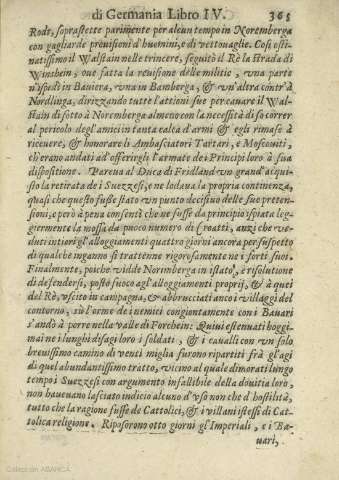 di Germania Libro IV. 365
Rode, soprastette parimente per alcun tempo in Noremberga
con gagliarde prouisioni d'huomini, e di vettouaglie. Così osti-
natissimo il Walstain nelle trincere, seguitò il Rè la strada di
Winsheim, oue fatta la reuisione delle militie, vna parte
n'ispedì in Bauiera, vna in Bamberga, & vn'altra contr'à
Nordlinga, dirizzando tutte l'attioni sue per cauare il Wal-
stain di sotto à Noremberga almeno con la necessità di soccorrer
al pericolo degl'amici in tanta calca d'armi & egli rimase à
riceuere, & honorare li Ambasciatori Tartari, e Moscouiti,
ch'erano andati ad offerirgli l'armate dei Principi loro à sua
dispositione. Pareua al Duca di Fridland vn grand'acqui-
sto la ritirata de i Suezzesi, e ne lodaua la propria continenza,
quasi che questo fusse stato vn punto decisiuo delle sue preten-
sioni, e però à pena consentì che ne fusse da principio ispiata leg-
giermente la mossa da puoco numero di Croatti, anzi che ve-
duti intieri gl'alloggiamenti quattro giorni ancora per suspetto
di qualche inganno si trattenne rigorosamente ne i forti suoi.
Finalmente, poiche vidde Norimberga in istato, e risolutione
di defendersi, postò fuoco agl'alloggiamenti proprij, & à quei
del Rè, vscito in campagna, & abbrucciati anco i villaggi del
contorno, sù l'orme de i nemici congiontamente con i Bauari
s'andò à porre nella valle di Forcheim: Quiui estenuati hoggi-
mai ne i lunghi disagi loro i soldati, & i caualli con vn solo
breuissimo camino di venti miglia furono ripartiti frà gl'agi
di quel abundantissimo tratto, vicino al quale dimorati lungo
tempo i Suezzesi con argomento infallibile della douitia loro,
non haueuano lasciato indicio alcuno d'vso non che d'hostilità,
tutto che la ragione fusse de Cattolici, & i villani istessi di Cat-
tolica religione. Riposorono otto giorni gl'Imperiali, e i Ba-
uari,
Colección ABANCA